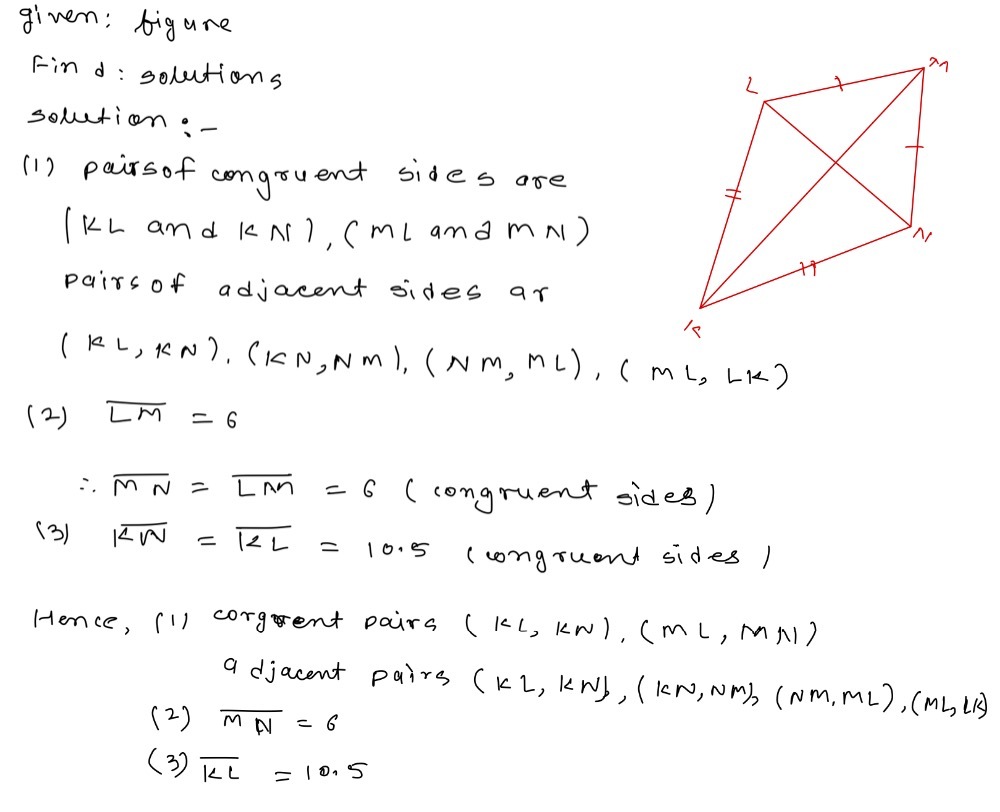 given: figure
Find: solutions
solution :-
(1) pairs of congruent sides are
(KL and KN), (ML and MN)
pairs of adjacent sides ar
(KL, KN), (KN, NM), (NM, ML), (ML, LK)
(2) LM = 6
∴ MN = LM = 6 (congruent sides)
(3) KN = KL = 10.5 (congruent sides)
Hence, (1) corgruent pairs (KL, KN), (ML, MN)
adjacent pairs (KL, KN), (KN, NM), (NM, ML), (ML, LK)
(2) MN = 6
(3) KL = 10.5
L
M
N
K